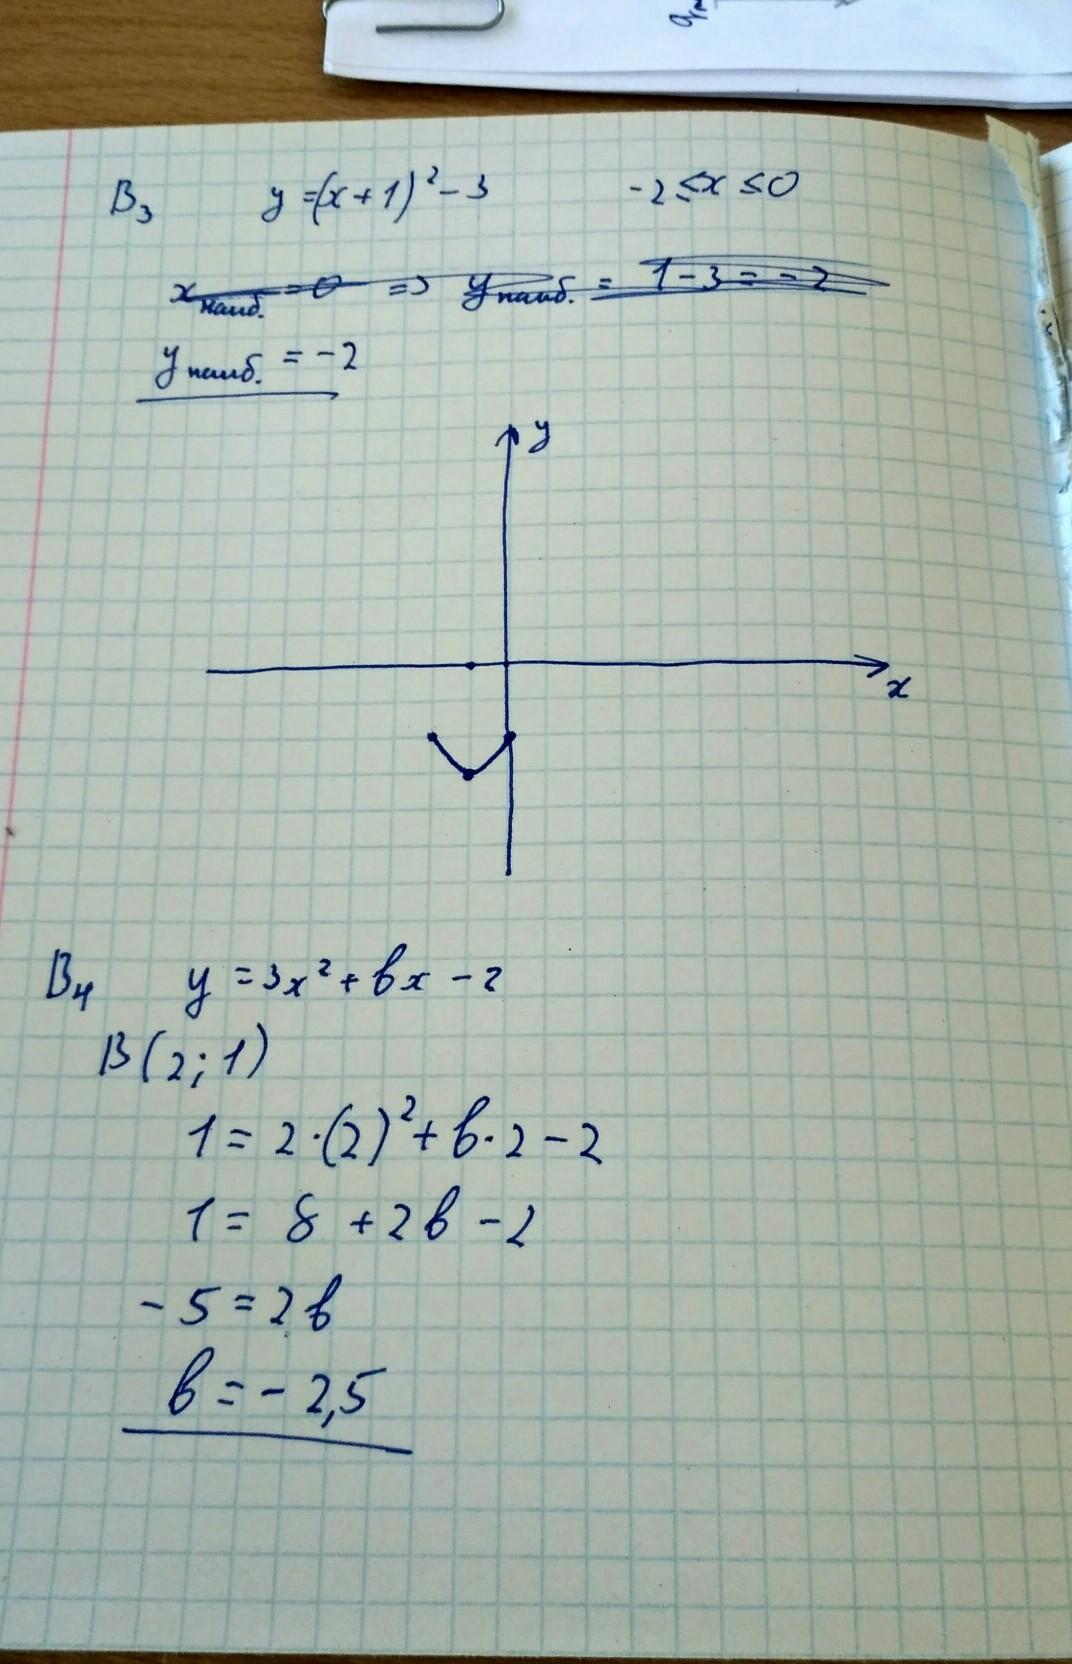 В₃ y=(x+1)²-3 -2≤x≤0
x наиб. = 0 => y наиб. = 1-3=-2
y наиб. = -2
y
x
В₄ y=3x²+bx-2
В(2;1)
1=2·(2)²+b·2-2
1= 8 +2b-2
-5=2b
b=-2,5